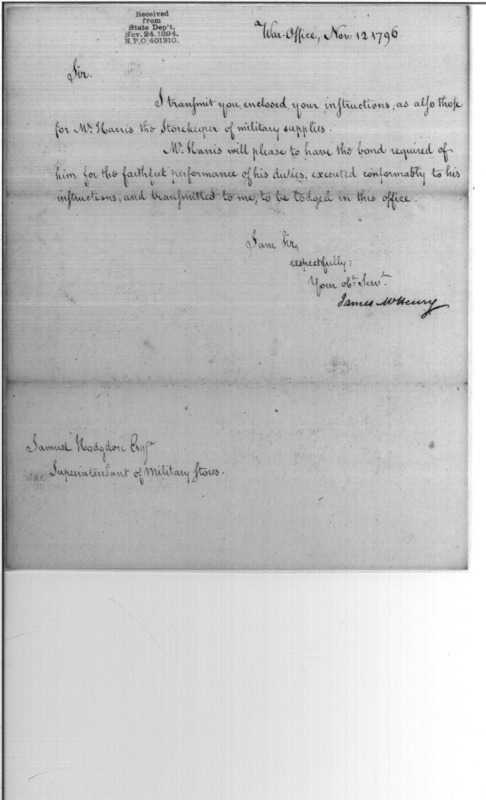 Received
from
State Dep't.
Nov. 24. 1894.
R.P.O. 401310.
War-Office, Nov: 12 1796
Sir.
I transmit you enclosed, your instructions, as also those
for Mr. Harris the Storekeeper of military supplies.
Mr. Harris will please to have the bond required of
him for the faithful performance of his duties, executed conformably to his
instructions, and transmitted to me, to be lodged in this office.
I am Sir,
respectfully,
Your obt. Servt.
James McHenry
Samuel Hodgdon Esqr.
Superintendant of Military Stores.